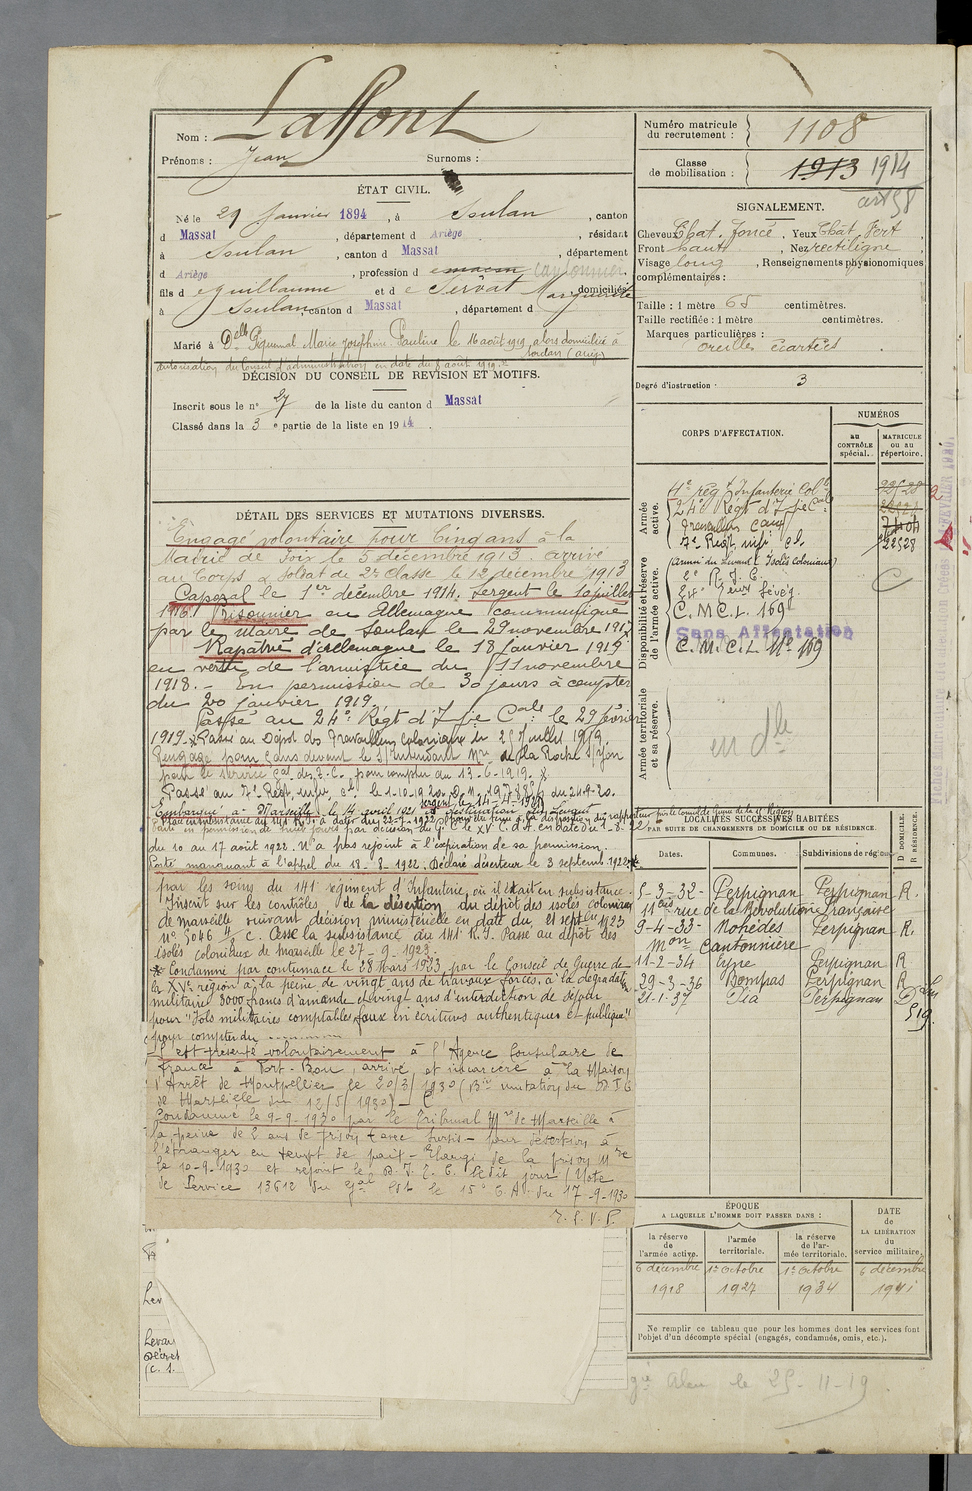 Nom : Laffont
Prénoms : Jean Surnoms :
ÉTAT CIVIL.
Né le 29 Janvier 1894, à Soulan, canton
d Massat, département d Ariège, résidant
à Soulan, canton d Massat, département
d Ariège, profession d e maçon cantonnier,
fils d e Guillaume et d e Servat Marguerite domiciliés
à Soulan canton d Massat, département d
Marié à Delle Piquemal Marie Joséphine Pauline le 16 août 1919, alors domicilié à
autorisation du Conseil d'administration en date du 8 août 1919
DÉCISION DU CONSEIL DE REVISION ET MOTIFS.
Inscrit sous le n° 27 de la liste du canton d Massat
Classé dans la 3 e partie de la liste en 1914.
DÉTAIL DES SERVICES ET MUTATIONS DIVERSES.
Engagé volontaire pour Cinq ans à la
Mairie de Foix le 5 décembre 1913. arrivé
au Corps & Soldat de 2e Classe le 12 décembre 1913
Caporal le 1er décembre 1914. Sergent le 10 juillet
1916. Prisonnier en Allemagne (communiqué
par le Maire de Soulan le 29 novembre 191
Rapatrié d'Allemagne le 18 Janvier 1919
en vertu de l'armistice du 11 novembre
1918. - En permission de 30 jours à compter
du 20 janvier 1919.
Passé au 24e Régt d'Ifie Cale le 29 février
1919. Passé au Dépôt des Travailleurs Coloniaux le 25 Juillet 1919.
Rengagé pour 5 ans devant le S/Intendant Mre de La Roche S/Yon
pour le service Gal des T.C. pour compter du 13-6-1919.
Passé au 7e Régt. infie cle le 1-10-1920. D.M. 19788 1/8 du 24-9-20.
Embarqué à Marseille le 14 avril 1921
du 10 au 17 août 1922. N'a pas rejoint à l'expiration de sa permission.
Porté manquant à l'appel du 18-8-1922. Déclaré déserteur le 3 septembre 1922
par les soins du 141 régiment d'Infanterie, où il était en subsistance.
Inscrit sur les contrôles de la désertion du dépôt des isolés coloniaux
de marseille suivant décision ministérielle en date du 21 septbre 1923
N° 5046 4/8 C. Cesse la subsistance au 141 R.I. Passé au dépôt des
isolés coloniaux de marseille le 27-9-1923
Condamné par contumace le 28 Mars 1923 par le Conseil de Guerre de
la XVe région à la peine de vingt ans de travaux forcés, à la dégradation
militaire 3000 francs d'amende et vingt ans d'interdiction de séjour
pour "Vols militaires comptables faux en écritures authentiques et publique"
pour compter du
S'est présenté volontairement à l'Agence Consulaire de
France à Port-Bou, arrivé et incarcéré à la Maison
d'Arrêt de Montpellier le 20/3/1930 (Bin mutation du D.I.C
de Marseille du 12/5/1930)
Condamné le 9-9-1930 par le Tribunal Mre de Marseille à
la peine de 2 ans de prison avec sursis pour désertion à
l'étranger en temps de paix - Elargi de la prison Mre
le 10-9-1930 et rejoint le D.I.C. ledit jour (Note
de Service 13612 du Gal Cdt le 15e C.A. du 17-9-1930
T.S.V.P.
Numéro matricule
du recrutement : 1108
Classe
de mobilisation : 1913 1914
art 58
SIGNALEMENT.
Cheveux Chat. foncé, Yeux Chat. Vert
Front haut, Nez rectiligne,
Visage long, Renseignements physionomiques
complémentaires :
Taille : 1 mètre 65 centimètres.
Taille rectifiée : 1 mètre centimètres.
Marques particulières :
oreilles écartées.
Degré d'instruction : 3
CORPS D'AFFECTATION.
NUMÉROS
au
CONTRÔLE
spécial.
MATRICULE
ou au
répertoire.
Armée
active.
4e rég t Infanterie Cole
24e Régt d'Ifie Cale
Travailleurs Caux
7e Régt. infie cl.
22528
Disponibilité et réserve
de l'armée active.
(Armée du Levant - Isolés coloniaux)
C.M.C.L. 169
Sans Affectation
C.M.C.L. N° 169
Armée territoriale
et sa réserve.
en dle
LOCALITÉS SUCCESSIVES HABITÉES
PAR SUITE DE CHANGEMENTS DE DOMICILE OU DE RÉSIDENCE.
Dates. Communes. Subdivisions de région. D. DOMICILE. R. RÉSIDENCE.
5-3-32- Perpignan Perpignan R.
11 bis rue de la Révolution française
9-4-33- Nohèdes Perpignan R.
Mon Cantonnière
11-2-34 Eyne Perpignan R
29-3-36 Bompas Perpignan R
21-1-37 Pia Perpignan D
ÉPOQUE
A LAQUELLE L'HOMME DOIT PASSER DANS :
la réserve
de
l'armée active.
l'armée
territoriale.
la réserve
de l'ar-
mée territoriale.
DATE
de
LA LIBÉRATION
du
service militaire.
6 décembre 1er Octobre 1er Octobre 6 décembre
1918 1927 1934 1941
Ne remplir ce tableau que pour les hommes dont les services font
l'objet d'un décompte spécial (engagés, condamnés, omis, etc.).
le 25-11-19
Lev
Levan
Décret
(C. 1.